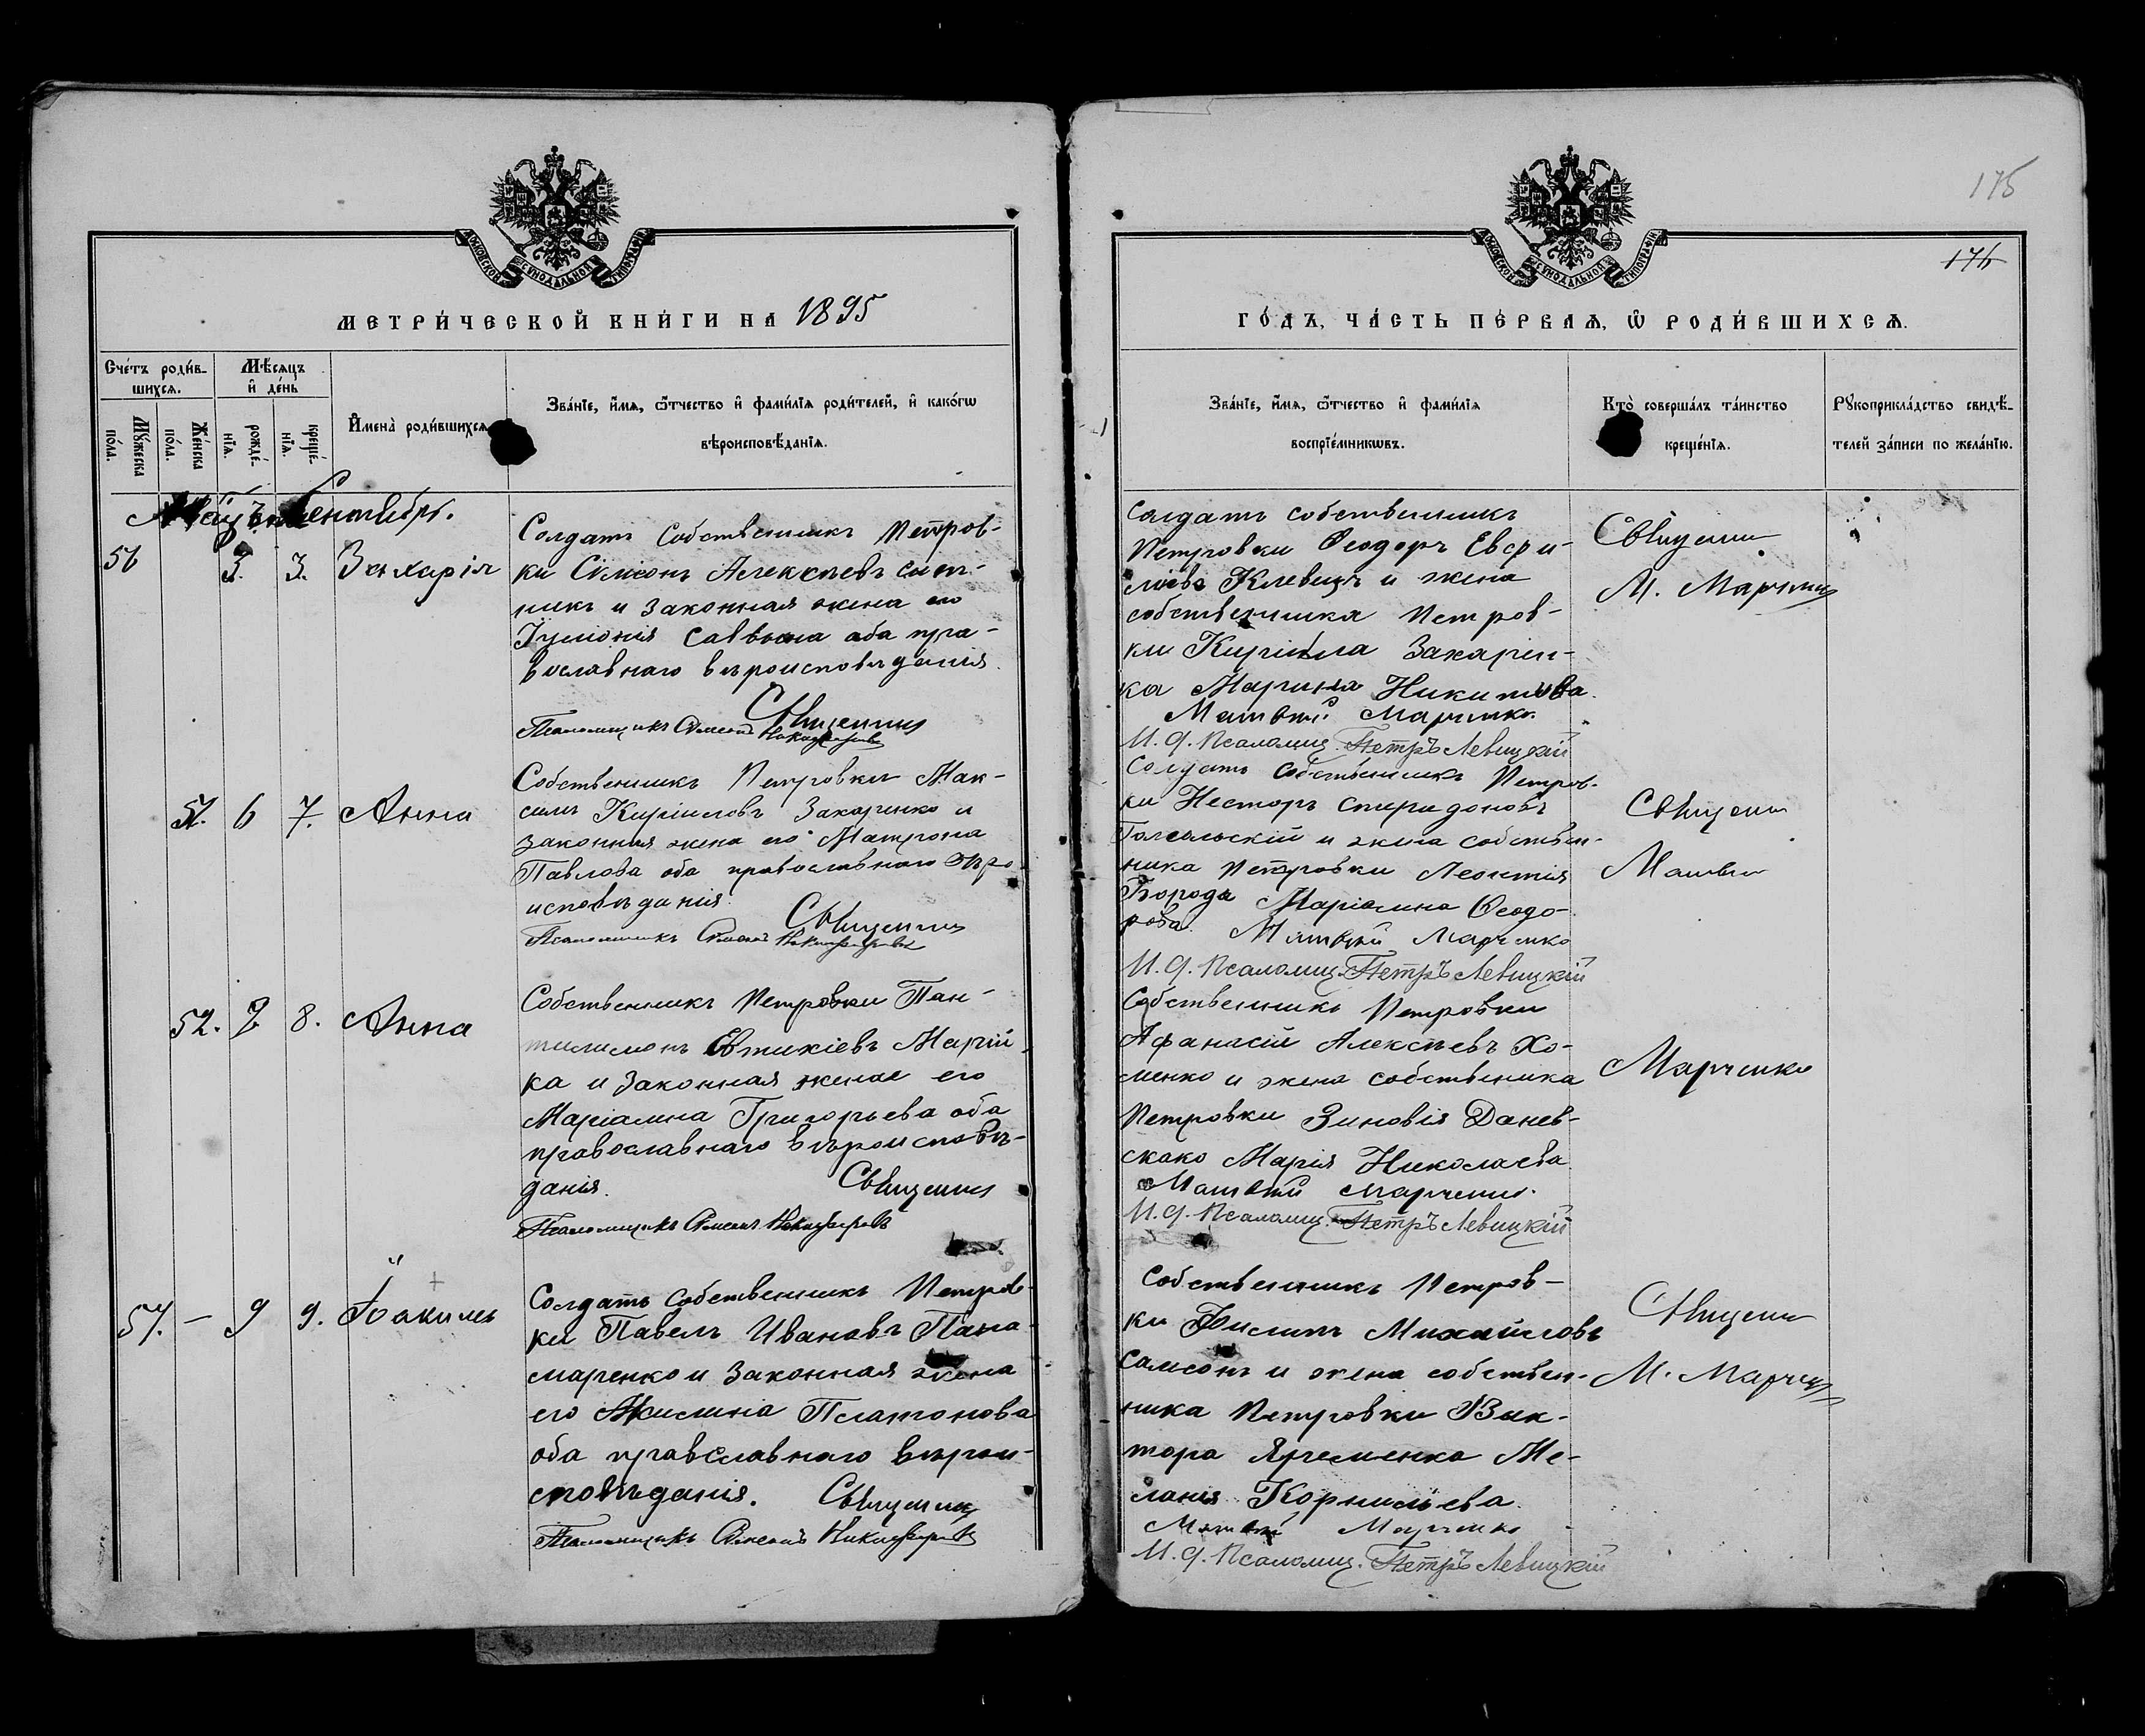 175
176
МОСКОВСКОЙ СѴНОДАЛЬНОЙ ТИПОГРАФІИ
МЕТРИ́ЧЕСКОЙ КНИ́ГИ НА 1895
Сче́тъ роди́в-
шихсѧ.
Мѣ́сѧцъ
и҆ де́нь
Мꙋ́жеска
по́ла.
Же́нска
по́ла.
рожде́-
нїѧ.
креще́-
нїѧ.
И҆мена̀ роди́вшихсѧ
Зва́нїе, и҆́мѧ, ѻ҆́тчество и҆ фами́лїѧ роди́телей, и҆ како́гѡ
вѣроисповѣ́данїѧ.
Сентябрь.
56 3. 3. Захарія
Солдатъ собственникъ Петров-
ки Сѵмеонъ Алексѣевъ
и законная жена его
Саввина оба пра-
вославнаго вѣроисповѣданія.
Священник
Псаломщикъ Симеонъ Никифоровъ
51. 6 7. Анна
Собственникъ Петровки Мак-
симъ Кирилловъ Захаренко и
законная жена его Матрона
Павлова оба православнаго вѣро-
исповѣданія.
Священник
Псаломщикъ Симеонъ Никифоровъ
52. 7 8. Анна
Собственникъ Петровки Пан-
телимонъ Евтихіевъ Марій-
ка и законная жена его
Маріамна Григорьева оба
православнаго вѣроисповѣ-
данія.
Священник
Псаломщикъ Симеонъ Никифоровъ
57. — 9 9. Іоакимъ
Солдатъ собственникъ Петров-
ки Павелъ Ивановъ Пана-
маренко и законная жена
его Акилина Платонова
оба православнаго вѣрои-
сповѣданія. Священник
Псаломщикъ Симеонъ Никифоровъ
ГО́ДЪ, ЧА́СТЬ ПЕ́РВАѦ, Ѽ РОДИ́ВШИХСѦ.
Зва́нїе, и҆́мѧ, ѻ҆́тчество и҆ фами́лїѧ
воспрїе́мникѡвъ.
Кто̀ соверша́лъ та́инство
креще́нїѧ.
Рꙋкоприкла́дство свидѣ́-
телей за́писи по жела́нїю.
Солдатъ собственникъ
Петровки Ѳеодоръ
и жена
собственника Петров-
ки Кирилла Захарен-
ка Марина Никитова.
Матвѣй Марченко.
И. д. Псаломщ. Петръ Левицкій
Священник
М. Марченко
Солдатъ собственникъ Петров-
ки Несторъ Спиридоновъ
и жена собствен-
ника Петровки Леонтія
Борода Маріамна Ѳеодо-
рова. Матвѣй Марченко
И. д. Псаломщ. Петръ Левицкій
Священник
Матвѣй
Собственникъ Петровки
Афанасій Алексѣевъ Хо-
менко и жена собственника
Петровки Зиновія Данев-
скако Марія Николаева
Матвѣй Марченко.
И. д. Псаломщ. Петръ Левицкій
Марченко
Собственникъ Петров-
ки Филипъ Михайловъ
Самсонъ и жена собствен-
ника Петровки Вик-
тора Яременка Ме-
ланія Корнильева.
Матвѣй Марченко
И. д. Псаломщ. Петръ Левицкій
Священник
М. Марченко